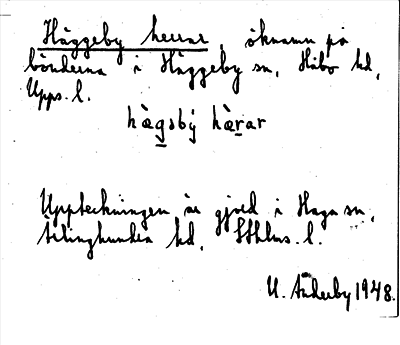 Häggeby herrar, öknamn på
bönderna i Häggeby sn, Håbo hd,
Upps. l.
hàgsbý hàrar
Uppteckningen är gjord i Haga sn,
Ärlinghundra hd, Sthlms. l.
U. Anderby 1948.